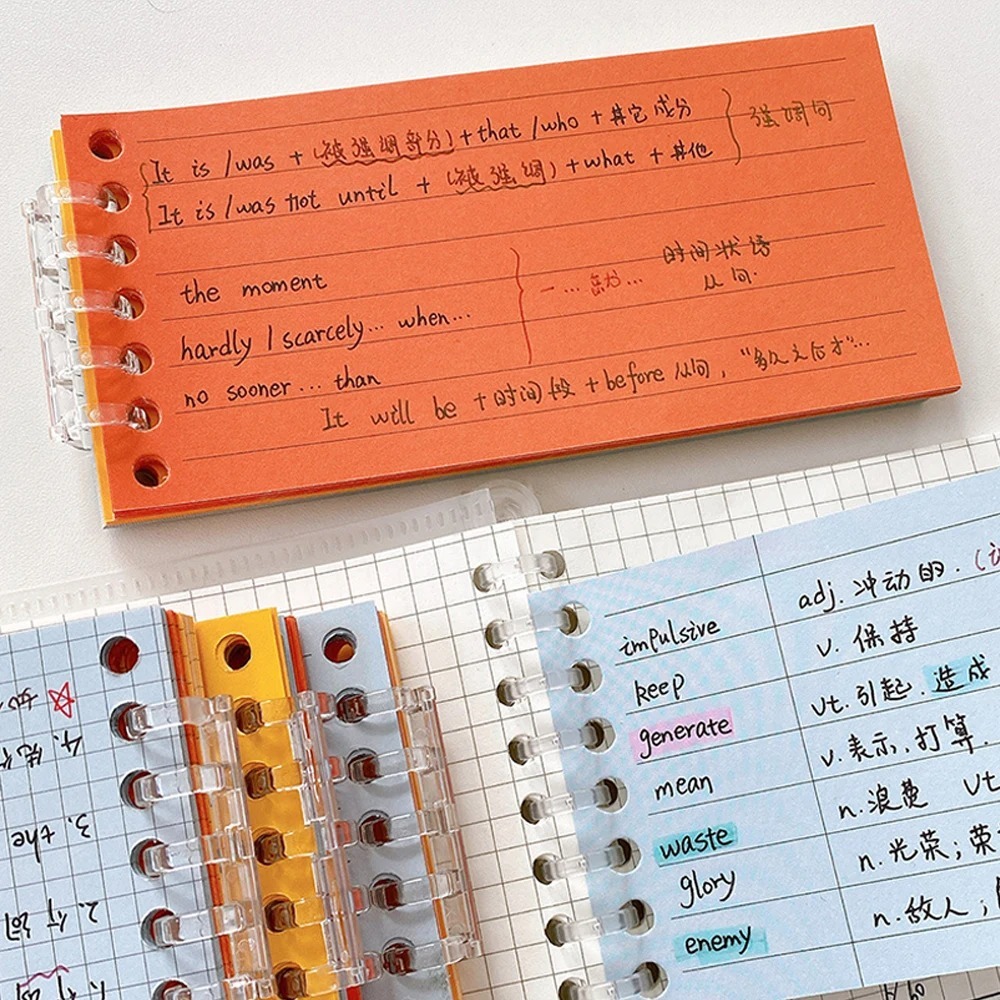 It is /was + (被强调部分)+that /who + 其它成分
It is /was not until + (被强调) +what + 其他
强调句
the moment
hardly / scarcely... when...
no sooner ... than
一 ... 就 ...
时间状语
从句.
It will be + 时间段 + before 从句, "多久之后才"...
impulsive adj. 冲动的.
keep v. 保持
generate vt. 引起. 造成
mean v. 表示、打算.
waste n. 浪费 vt
glory n. 光荣; 荣
enemy n. 敌人;
3. the